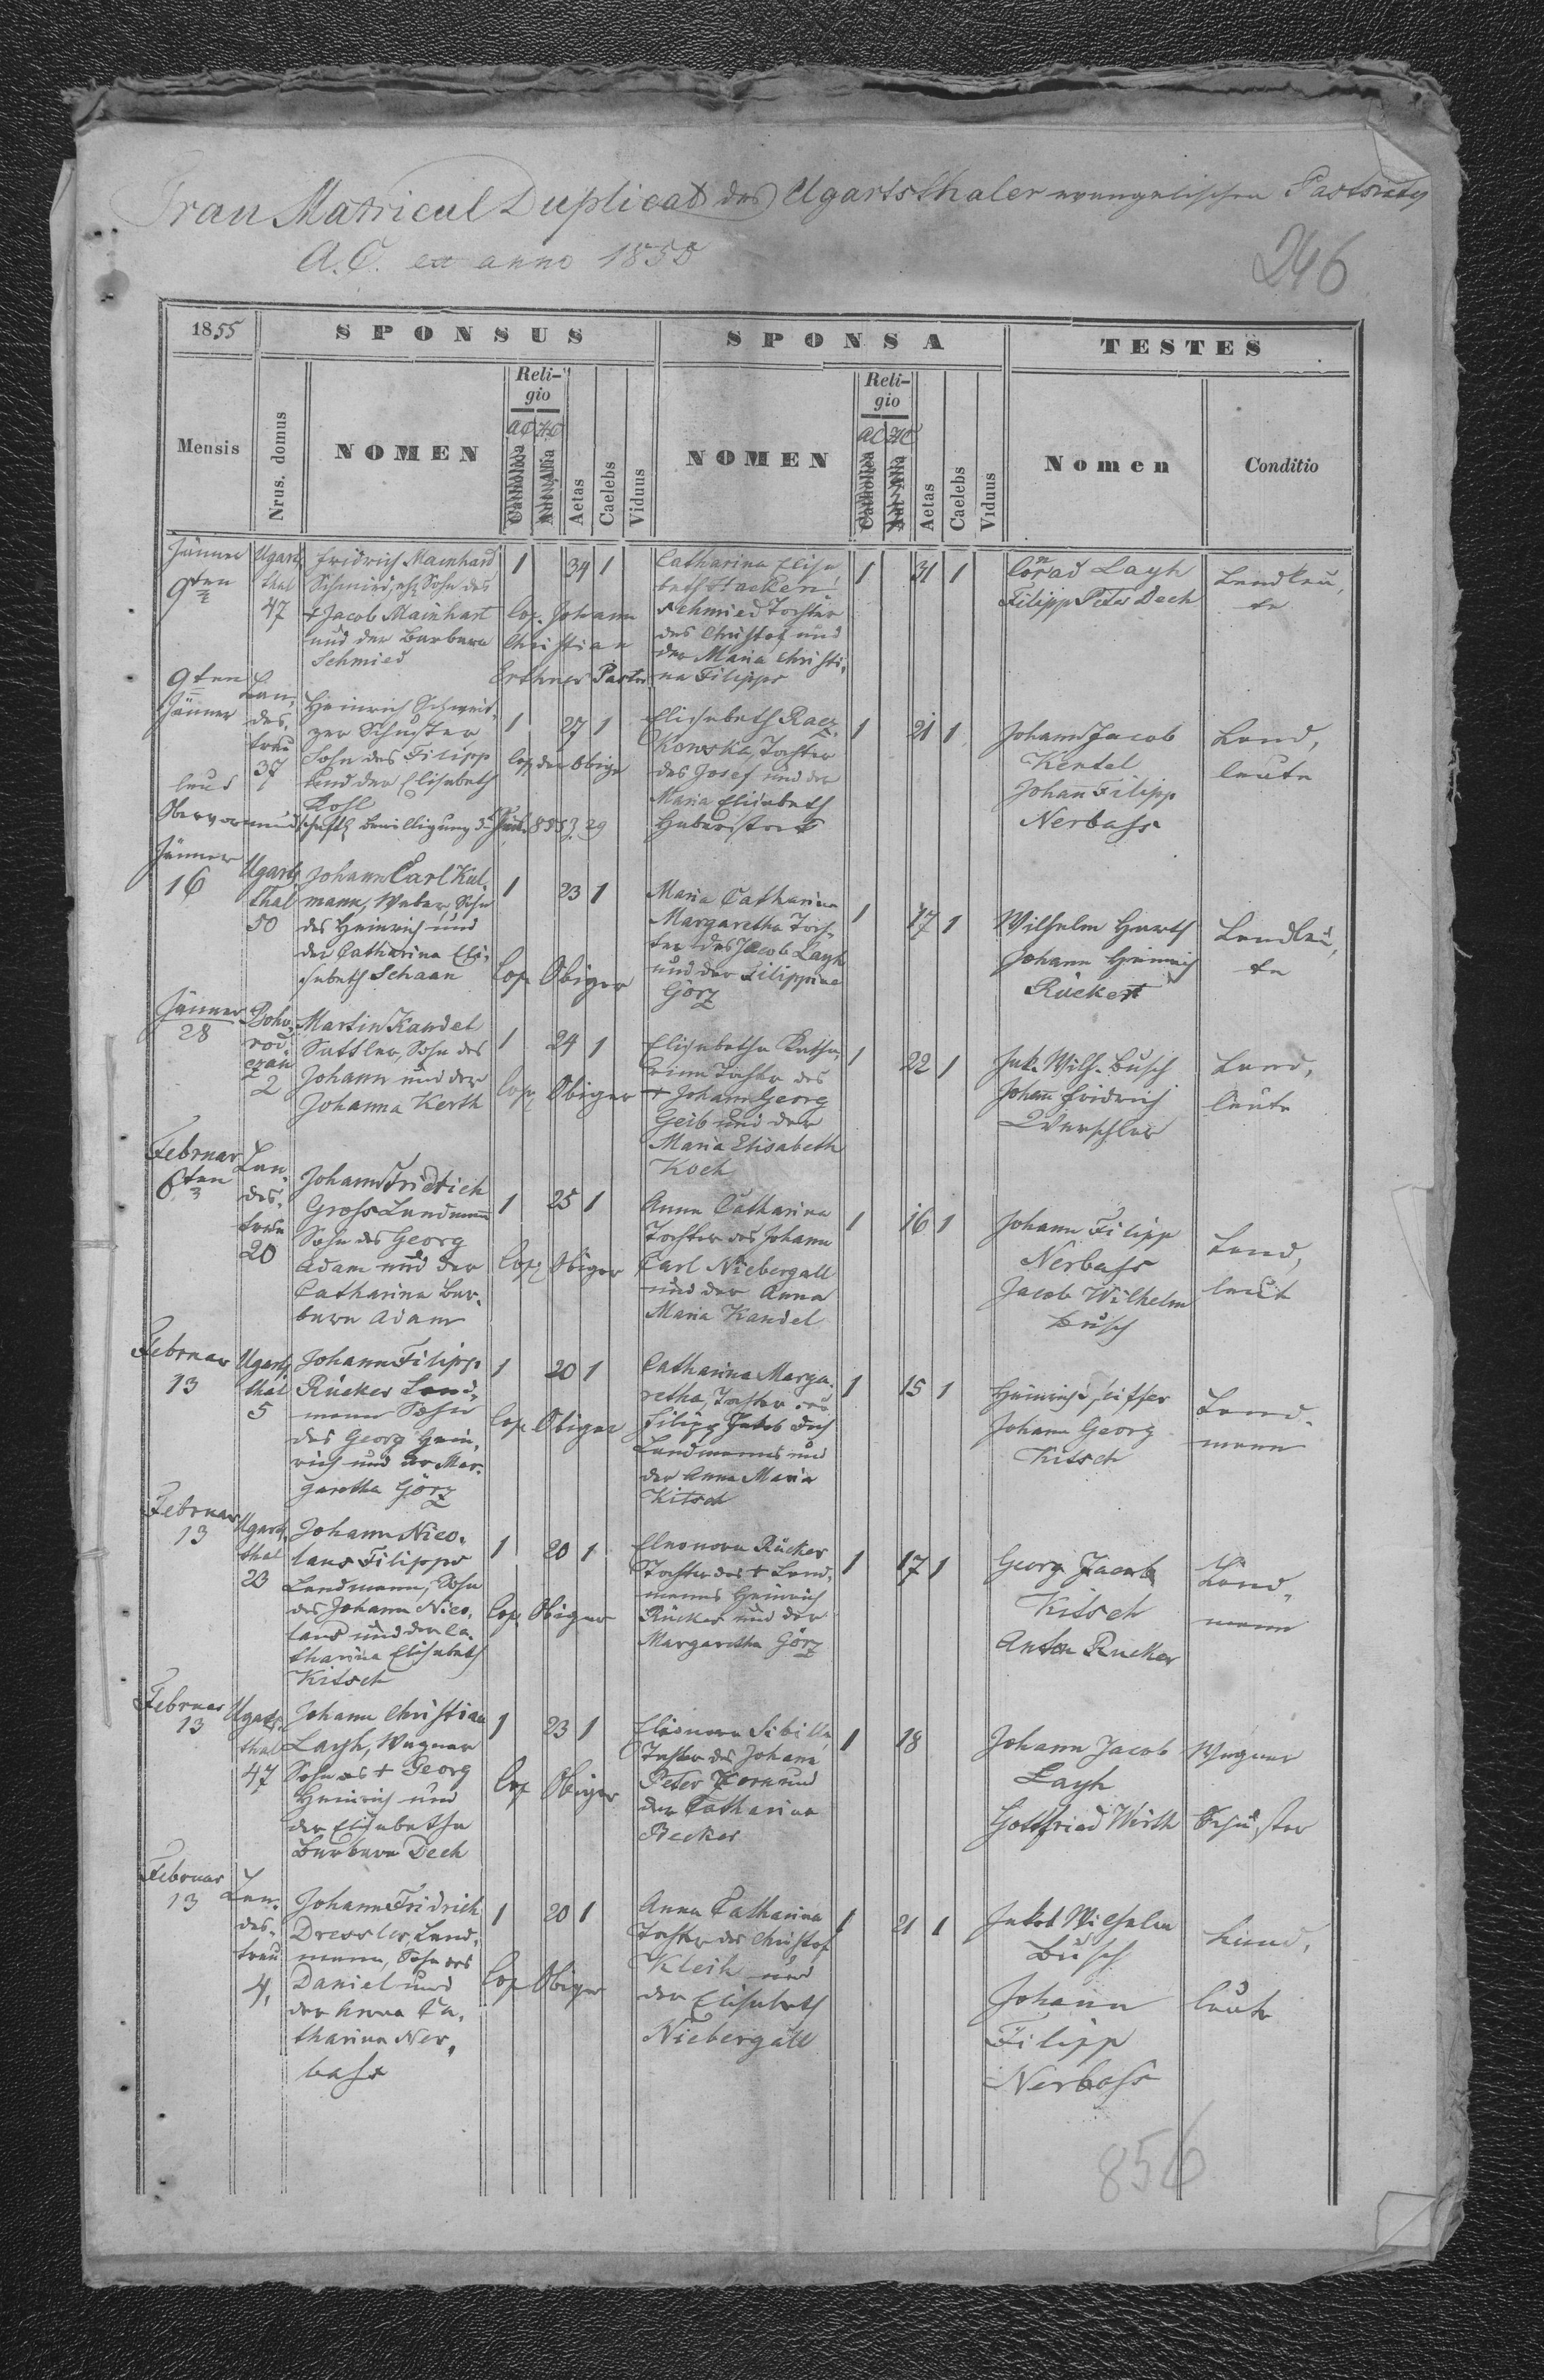 Trau Matricul Duplicat des Ugartsthaler evangelischen Pastorats
A.C. ex anno 1855
246
1855
SPONSUS
SPONSA
TESTES
Mensis
Nrus. domus
NOMEN
Religio
AC HC
Catholica
Aut Alia
Aetas
Caelebs
Viduus
NOMEN
Religio
AC HC
Catholica
Aut Alia
Aetas
Caelebs
Viduus
Nomen
Conditio
Jänner
9ten
Ugarts
thal
47
Fridrich Mainhard
Schmied, Sohn des
+ Jacob Mainhart
und der Barbara
Schmied
1 34 1
Cop. Johann
Christian
Erthner Pastor
Catharina Elisa
beth Hacken
Schmied Tochter
des Christof und
der Maria Christi,
na Filipps
1 31 1
Conrad Layh
Filipp Peter Dech
Landleu,
te
9ten
Jänner
Lan,
des,
treu
37
Heinrich Schweit,
zer Schuster
Sohn des Filipp
und der Elisabeth
1 27 1
Cop. der Obige
Elisabeth Racz
Kowska, Tochter
des Josef und der
Maria Elisabeth
Haberstock
1 21 1
Johann Jacob
Kentel
Johann Filipp
Nerbass
Land,
leute
laut
Obervormundschaftl Bewilligung
Jänner
16
Ugarts
thal
50
Johann Carl Kul,
mann, Weber, Sohn
des Heinrich und
der Catharina Eli,
sabeth Schaan
1 23 1
Cop. Obiger
Maria Catharina
Margaretha Toch,
ter des Jacob Layh
und der Filippina
Görz
1 17 1
Wilhelm Harth
Johann Heinrich
Rückert
Landleu,
te
Jänner
28
Boho,
rod,
czan
2
Martin Kandel
Sattler, Sohn des
Johann und der
Johanna Kerth
1 24 1
Cop. Obiger
Elisabetha Katha,
rina Tochter des
+ Johann Georg
Geib und der
Maria Elisabeth
Koch
1 22 1
Jak. Wilh. Busch
Johann Fridrich
Land,
leute
Februar
6ten
Lan,
des,
treu
20
Johann Fridrich
Gross Landmann
Sohn des Georg
Adam und der
Catharina Bar,
bara Adam
1 25 1
Cop. Obiger
Anna Catharina
Tochter des Johann
Carl Niebergall
und der Anna
Maria Kandel
1 16 1
Johann Filipp
Nerbass
Jacob Wilhelm
Busch
Land,
leute
Februar
13
Ugarts
thal
5
Johann Filipp
Rücker Land,
mann Sohn
des Georg Hein,
rich und der Mar,
garetha Görz
1 20 1
Cop. Obiger
Catharina Marga,
retha, Tochter des
Filipp Jakob Dech
Landmannes und
der Anna Maria
Kitsch
1 15 1
Heinrich
Johann Georg
Kitsch
Land,
mann
Februar
13
Ugarts,
thal
23
Johann Nico,
laus Filipps
Landmann, Sohn
des Johann Nico,
laus und der Ca,
tharina Elisabeth
Kitsch
1 20 1
Cop. Obiger
Eleonora Rücker
Tochter des + Land,
mannes Heinrich
Rücker und der
Margaretha Görz
1 17 1
Georg Jacob
Kitsch
Anton Rucker
Land,
mann
Februar
13
Ugarts,
thal
47
Johann Christian
Layh, Wagner
Sohn des + Georg
Heinrich und
der Elisabetha
Barbara Dech
1 23 1
Cop. Obiger
Eleonora Sibilla
Tochter des Johann
Peter Korn und
der Catharina
Becker
1 18
Johann Jacob
Layh
Gottfried Wirth
Wagner
Schuster
Februar
13
Lan,
des,
treu
4,
Johann Fridrich
Dressler, Land,
mann, Sohn des
Daniel und
der Anna Ca,
tharina Ner,
bass
1 20 1
Cop Obiger
Anna Catharina
Tochter des Christof
Kleih und
der Elisabeth
Niebergall
1 21 1
Jakob Wilhelm
Busch
Johann
Filipp
Nerbass
Land,
leute
856